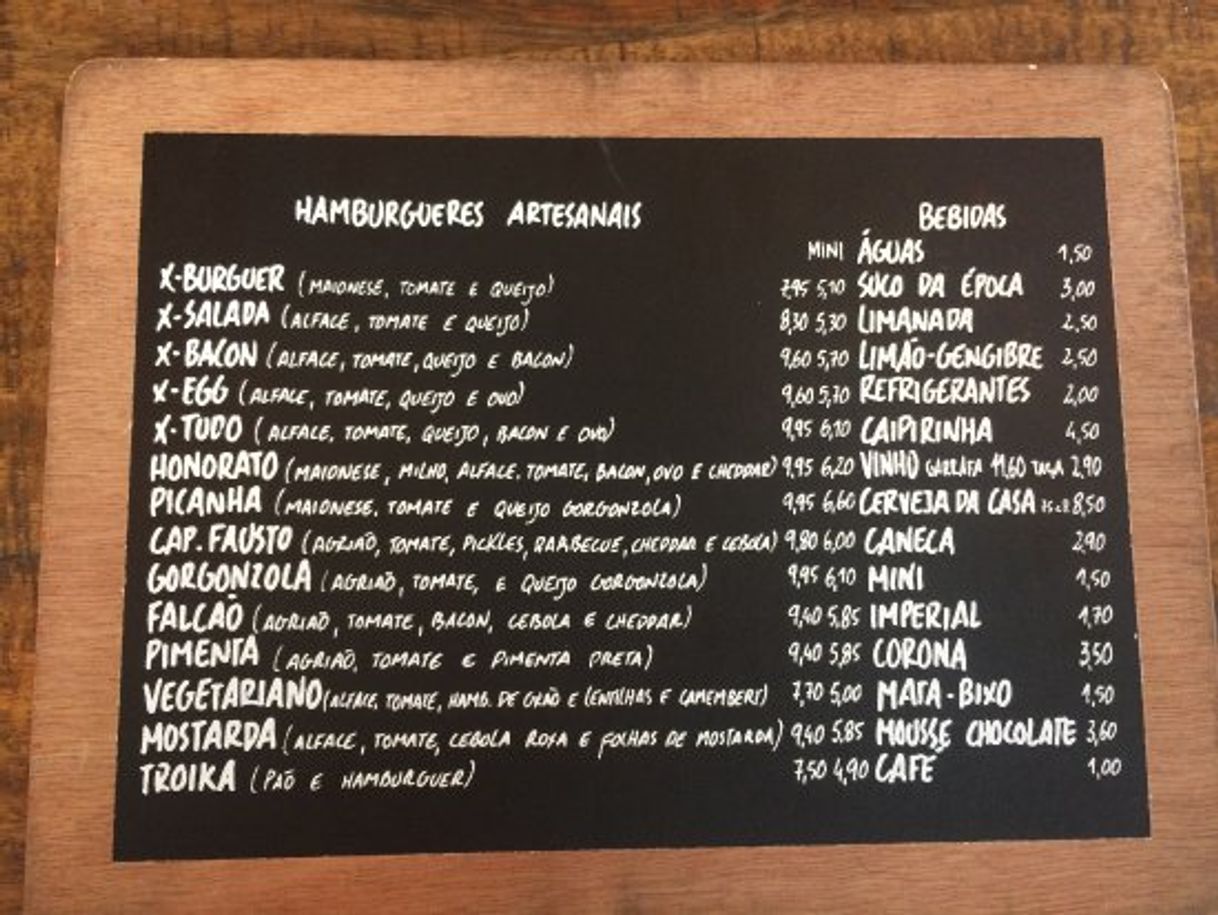 HAMBURGUERES ARTESANAIS
MINI
X-BURGUER (MAIONESE, TOMATE E QUEIJO) 7,95 5,10
X-SALADA (ALFACE, TOMATE E QUEIJO) 8,30 5,30
X-BACON (ALFACE, TOMATE, QUEIJO E BACON) 9,60 5,70
X-EGG (ALFACE, TOMATE, QUEIJO E OVO) 9,60 5,70
X-TUDO (ALFACE, TOMATE, QUEIJO, BACON E OVO) 9,95 6,10
HONORATO (MAIONESE, MILHO, ALFACE, TOMATE, BACON, OVO E CHEDDAR) 9,95 6,20
PICANHA (MAIONESE, TOMATE E QUEIJO GORGONZOLA) 9,95 6,60
CAP. FAUSTO (AGRIAÕ, TOMATE, PICKLES, BARBECUE, CHEDDAR E CEBOLA) 9,80 6,00
GORGONZOLA (AGRIAÕ, TOMATE, E QUEIJO GORGONZOLA) 9,95 6,10
FALCAÕ (AGRIAÕ, TOMATE, BACON, CEBOLA E CHEDDAR) 9,40 5,85
PIMENTA (AGRIAÕ, TOMATE E PIMENTA PRETA) 9,40 5,85
VEGETARIANO (ALFACE, TOMATE, HAMB. DE GRAÕ E LENTILHAS E CAMEMBERT) 7,70 5,00
MOSTARDA (ALFACE, TOMATE, CEBOLA ROXA E FOLHAS DE MOSTARDA) 9,40 5,85
TROIKA (PAÕ E HAMBURGUER) 7,50 4,90
BEBIDAS
ÁGUAS 1,50
SUCO DA ÉPOCA 3,00
LIMANADA 2,50
LIMÃO-GENGIBRE 2,50
REFRIGERANTES 2,00
CAIPIRINHA 4,50
VINHO GARRAFA 11,60 TAÇA 2,90
CERVEJA DA CASA 8,50
CANECA 2,90
MINI 1,50
IMPERIAL 1,70
CORONA 3,50
MATA-BIXO 1,50
MOUSSE CHOCOLATE 3,60
CAFÉ 1,00